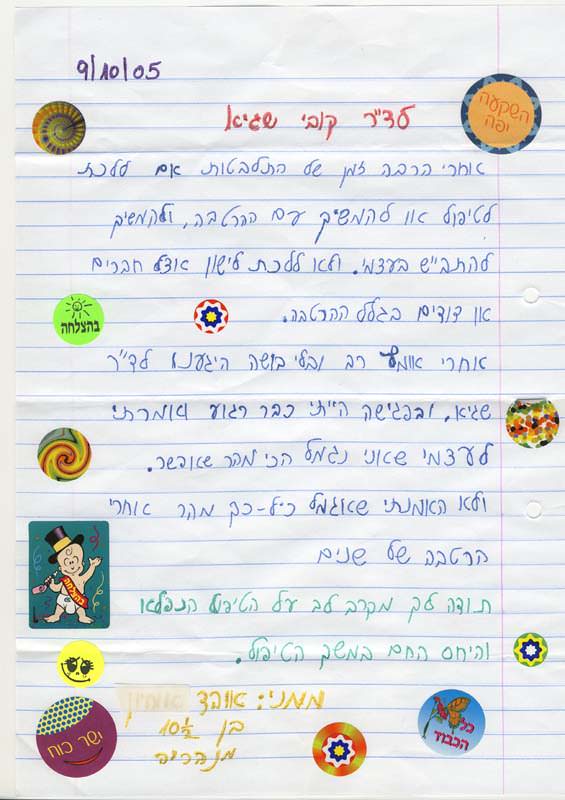 9/10/05
לד"ר קובי שגיא
השקעה
יפה
אחרי הרבה זמן של התלבטות אם ללכת
לטיפול או להמשיך עם ההרטבה, ולהמשיך
להתבייש בעצמי. ולא ללכת לישון אצל חברים
או דודים בגלל ההרטבה.
בהצלחה
אחרי אומץ רב ובלי בושה הגענו לד"ר
שגיא. ובפגישה הייתי כבר רגוע ואמרתי
לעצמי שאני נגמל הכי מהר שאפשר.
ולא האמנתי שאגמל כל-כך מהר אחרי
הרטבה של שנים
בהצלחה
תודה לך מקרב לב על הטיפול הנפלא
והיחס החם במשך הטיפול.
ממני: אוהד
בן 10½
מנהריה
ישר כוח
כל
הכבוד